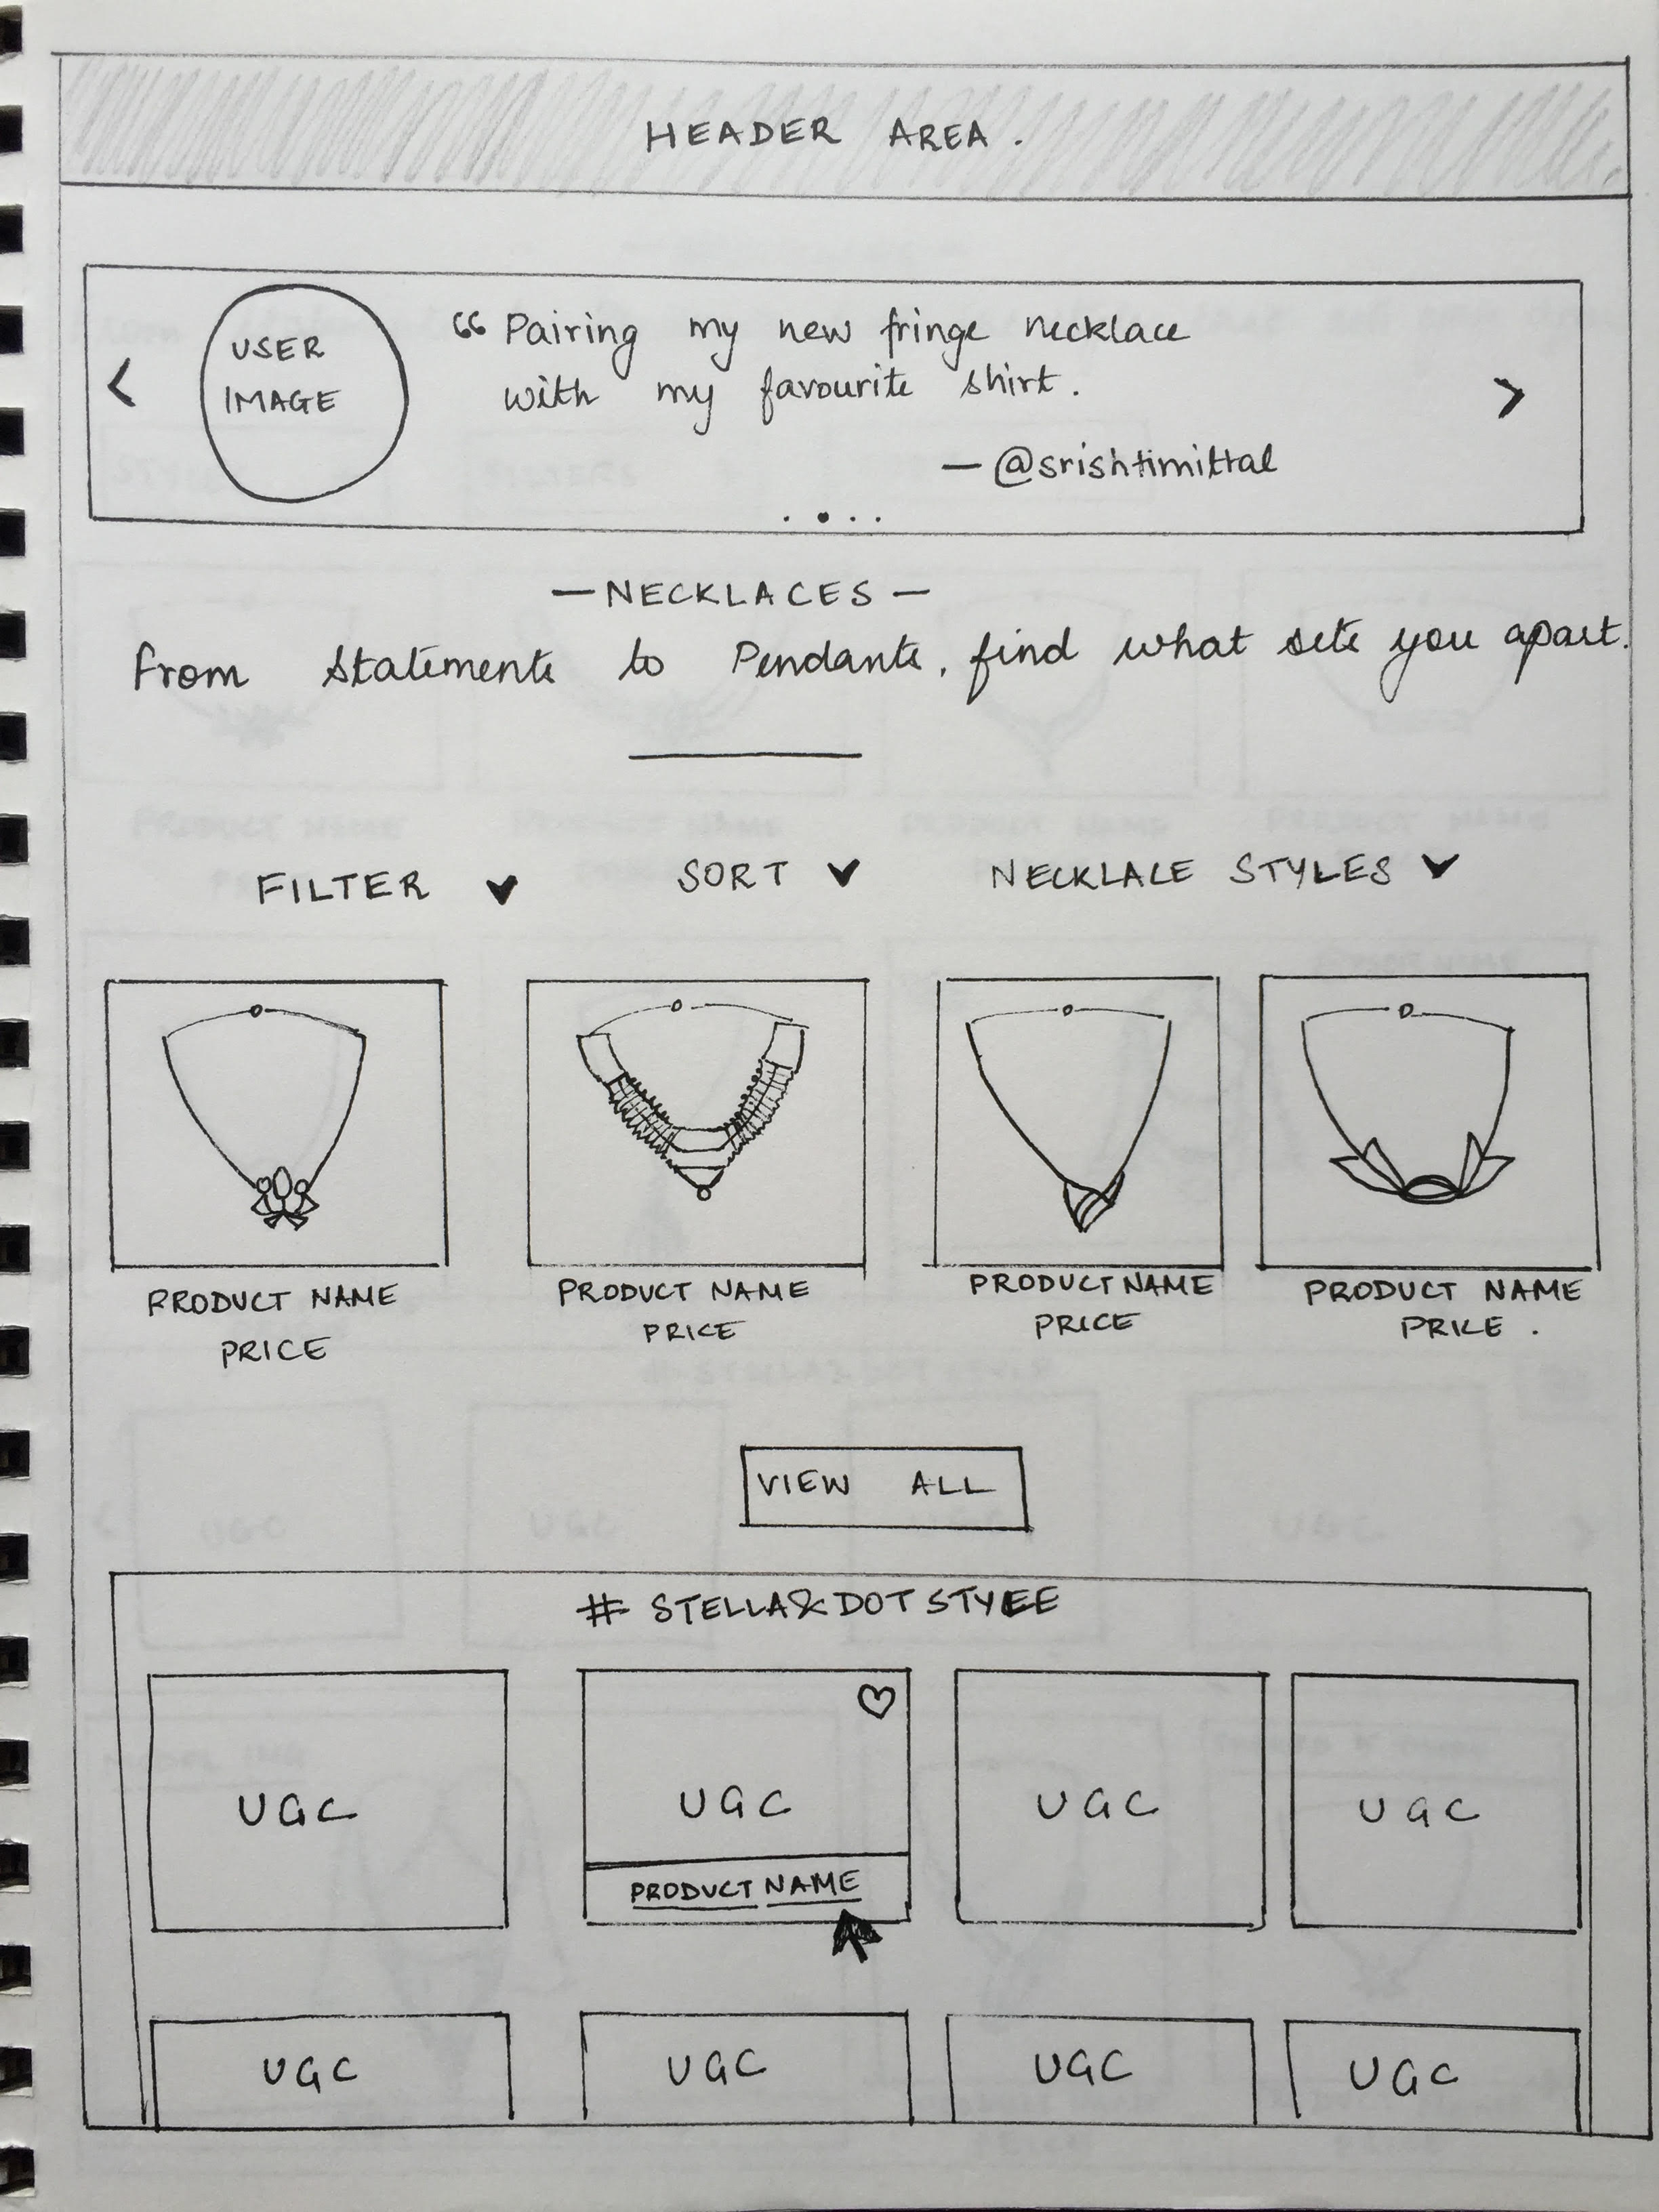 HEADER AREA.
USER
IMAGE
“ Pairing my new fringe necklace
with my favourite shirt.
— @srishtimittal
— NECKLACES —
from Statements to Pendants, find what sets you apart.
FILTER
SORT
NECKLACE STYLES
PRODUCT NAME
PRICE
PRODUCT NAME
PRICE
PRODUCT NAME
PRICE
PRODUCT NAME
PRICE.
VIEW ALL
# STELLA&DOT STYLE
UGC
UGC
PRODUCT NAME
UGC
UGC
UGC
UGC
UGC
UGC